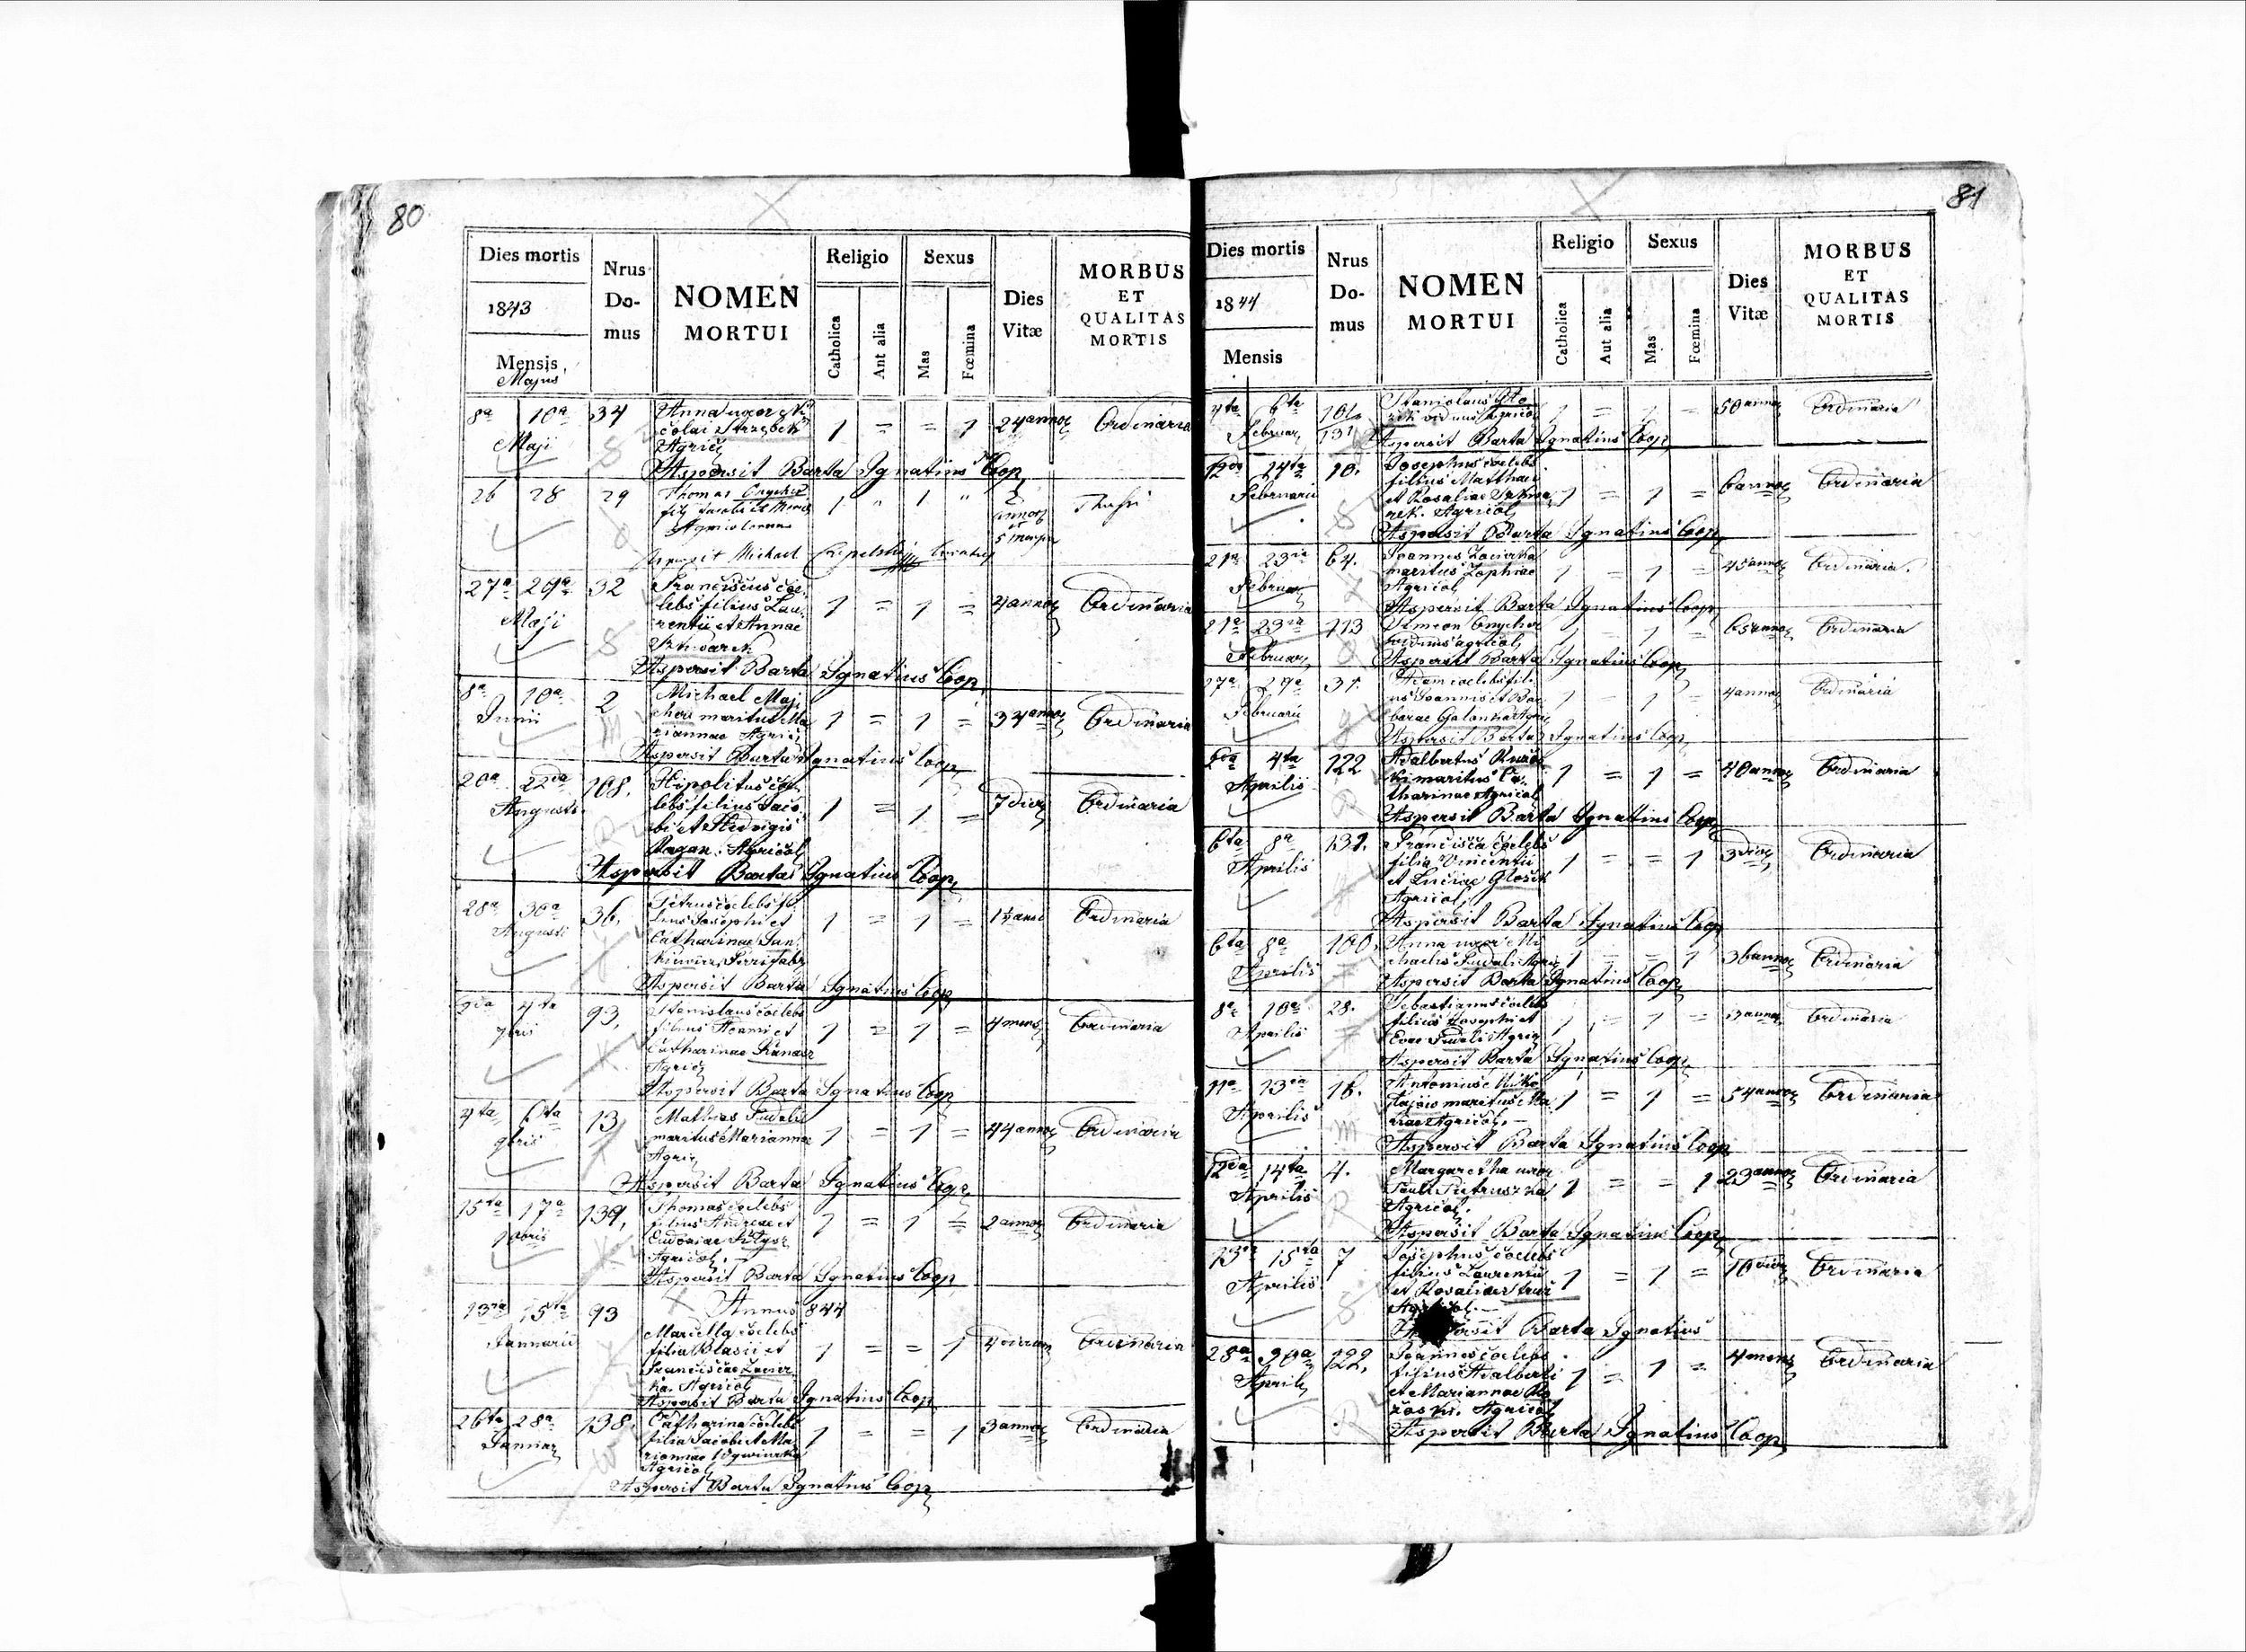 80
Dies mortis
1843
Mensis,
Majus
Nrus Do- mus
NOMEN
MORTUI
Religio
Catholica
Aut alia
Sexus
Mas
Fœmina
Dies
Vitæ
MORBUS
ET
QUALITAS
MORTIS
8a 10a 34 Anna uxor Ni 1 = = 1 24 annor Ordinaria
Maji colai Strzębek
Agric
Aspersit Barta Ignatius Coop
26 28 29 Thomas 1 " 1 " 2
fil Jacobi et annor
et
5 mens
Aspersit Michael
27a 29a 32 Franciscus coe 1 = 1 = 4 annor Ordinaria
Maji lebs filius Lau
rentii et Annae
Aspersit Barta Ignatius Coop
8a 10a 2 Michael Maj 1 = 1 = 34 annor Ordinaria
Junii cher maritus Ma
riannae Agric
Aspersit Barta Ignatius Coop
20a 22da 108. Hipolitus coe 1 = 1 = 7 dier Ordinaria
Augusti lebs filius Jaco
bi et Hedvigis
Ragan. Agricol
Aspersit Barta Ignatius Coop
28a 30a 36. Petrus coelebs fi 1 = 1 = 1½ anni Ordinaria
Augusti lius Josephi et
Catharinae Jan
kiewicz
Aspersit Barta Ignatius Coop
2da 4ta 93, Stanislaus coelebs 1 = 1 = 4 mens Ordinaria
7bris filius Adami et
Catharinae Kanasz
Agric
Aspersit Barta Ignatius Coop
4ta 6ta 13 Mathias Fudali 1 = 1 = 44 annor Ordinaria
9bris maritus Marianna
Agric
Aspersit Barta Ignatius Coop
15ta 17a 139, Thomas coelebs 1 = 1 = 2 annor Ordinaria
10bris filius Andreae et
Agricol.
Aspersit Barta Ignatius Coop
Annus 844
13ia 15ta 93 Marcella coelebs 1 = = 1 4 Ordinaria
Januarii filia Blasii et
Franciscae Lacier
ka. Agricol
Aspersit Barta Ignatius Coop
26ta 28a 138. Catharina coelebs 1 = = 1 3 annor Ordinaria
Januar filia Jacobi et Ma
riannae
Agricol
Aspersit Barta Ignatius Coop
81
Dies mortis
1844
Mensis
Nrus Do- mus
NOMEN
MORTUI
Religio
Catholica
Aut alia
Sexus
Mas
Fœmina
Dies
Vitæ
MORBUS
ET
QUALITAS
MORTIS
4ta 6ta 101. Stanislaus Gło 1 = 1 = 50 annor Ordinaria
Februar 131 zek viduus Agricol
Aspersit Barta Ignatius Coop
12da 14ta 10. Josephus coelebs 1 = 1 = 6 annor Ordinaria
Februarii filius Matthaei
et Rosaliae
rek. Agricol
Aspersit Barta Ignatius Coop
21a 23ia 64. Joannes Lacierka 1 = 1 = 45 annor Ordinaria
Februar maritus Zophiae
Agricol
Aspersit Barta Ignatius Coop
21a 23ia 113 Simeon 1 = 1 = 65 annor Ordinaria
Februar viduus agricol
Aspersit Barta Ignatius Coop
27a 29a 31. Adam coelebs fili 1 - 1 - 4 annor Ordinaria
Februarii us Joannis et Bar
barae Galanka Agric
Aspersit Barta Ignatius Coop
2da 4ta 122 Adalbertus 1 = 1 = 40 annor Ordinaria
Aprilis ki maritus Ca
tharinae Agricol
Aspersit Barta Ignatius Coop
6ta 8a 131. Francisca coelebs 1 = = 1 3 dier Ordinaria
Aprilis filia Vincentii
et Luciae Głozek
Agricol,
Aspersit Barta Ignatius Coop
6ta 8a 100, Anna uxor Mi 1 - = 1 36 annor Ordinaria
Aprilis chaelis Fudali Agric
Aspersit Barta Ignatius Coop
8a 10a 28. Sebastianus coelebs 1 = 1 = annor Ordinaria
Aprilis filius Josephi et
Evae Fudali Agric
Aspersit Barta Ignatius Coop
11a 13ia 16. Antonius Miko 1 = 1 = 54 annor Ordinaria
Aprilis łajcis maritus Ma
riae Agricol. -
Aspersit Barta Ignatius Coop
12da 14ta 4. Margaretha uxor 1 = = 1 23 annor Ordinaria
Aprilis Pauli Pietruszka
Agricol.
Aspersit Barta Ignatius Coop
13ia 15ta 7 Josephus coelebs 1 = 1 = 10 dier Ordinaria
Aprilis filius Laurentii
et Rosaliae
Barta Ignatius
28a 30a 122, Joannes coelebs 1 = 1 = 4 mens Ordinaria
Aprilis filius Adalberti
et Mariannae Ro
żaski. Agricol
Aspersit Barta Ignatius Coop